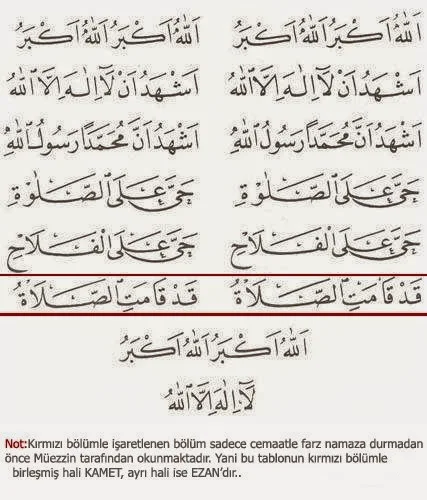 اَللّٰهُ اَكْبَرُ اَللّٰهُ اَكْبَرُ اَللّٰهُ اَكْبَرُ اَللّٰهُ اَكْبَرُ
اَشْهَدُ اَنْ لَٓا اِلٰهَ اِلَّا اللّٰهُ اَشْهَدُ اَنْ لَٓا اِلٰهَ اِلَّا اللّٰهُ
اَشْهَدُ اَنَّ مُحَمَّدًا رَسُولُ اللّٰهِ اَشْهَدُ اَنَّ مُحَمَّدًا رَسُولُ اللّٰهِ
حَيَّ عَلَى الصَّلٰوةِ حَيَّ عَلَى الصَّلٰوةِ
حَيَّ عَلَى الْفَلَاحِ حَيَّ عَلَى الْفَلَاحِ
قَدْ قَامَتِ الصَّلَاةُ قَدْ قَامَتِ الصَّلَاةُ
اَللّٰهُ اَكْبَرُ اَللّٰهُ اَكْبَرُ
لَٓا اِلٰهَ اِلَّا اللّٰهُ
Not:Kırmızı bölümle işaretlenen bölüm sadece cemaatle farz namaza durmadan
önce Müezzin tarafından okunmaktadır. Yani bu tablonun kırmızı bölümle
birleşmiş hali KAMET, ayrı hali ise EZAN'dır..